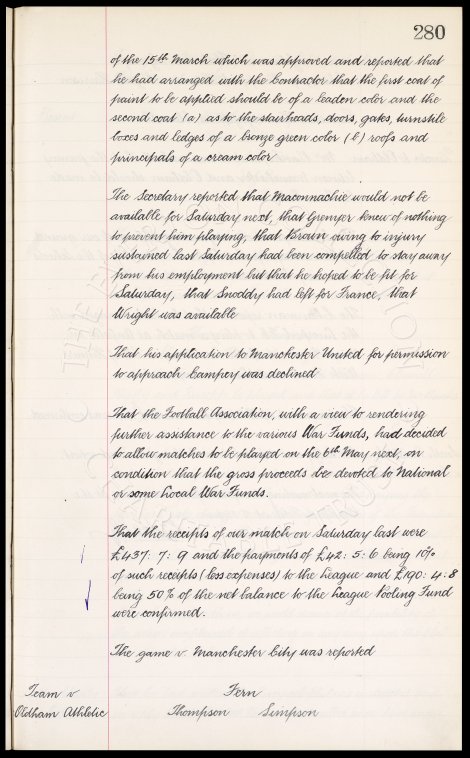 280
of the 15th March which was approved and reported that
he had arranged with the Contractor that the first coat of
paint to be applied should be of a leaden color and the
second coat (a) as to the stairheads, doors, gates, turnstile
boxes and ledges of a bronze green color (b) roofs and
principals of a cream color
The Secretary reported that Maconnachie would not be
available for Saturday next, that Grenyer knew of nothing
to prevent him playing, that Brown owing to injury
sustained last Saturday had been compelled to stay away
from his employment but that he hoped to be fit for
Saturday, that Snoddy had left for France, that
Wright was available
That his application to Manchester United for permission
to approach Campey was declined
That the Football Association, with a view to rendering
further assistance to the various War Funds, had decided
to allow matches to be played on the 6th May next, on
condition that the gross proceeds be devoted to National
or some Local War Funds.
That the receipts of our match on Saturday last were
£437: 7: 9 and the payments of £42: 5: 6 being 10%
of such receipts (less expenses) to the League and £190: 4: 8
being 50% of the net balance to the League Pooling Fund
were confirmed.
The game v. Manchester City was reported
Team v
Oldham Athletic
Fern
Thompson Simpson